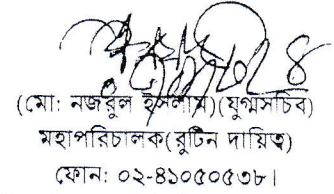 (মো: নজরুল ইসলাম)(যুগ্মসচিব)
মহাপরিচালক(রুটিন দায়িত্ব)
ফোন: ০২-৪১০৫০৫৩৮।